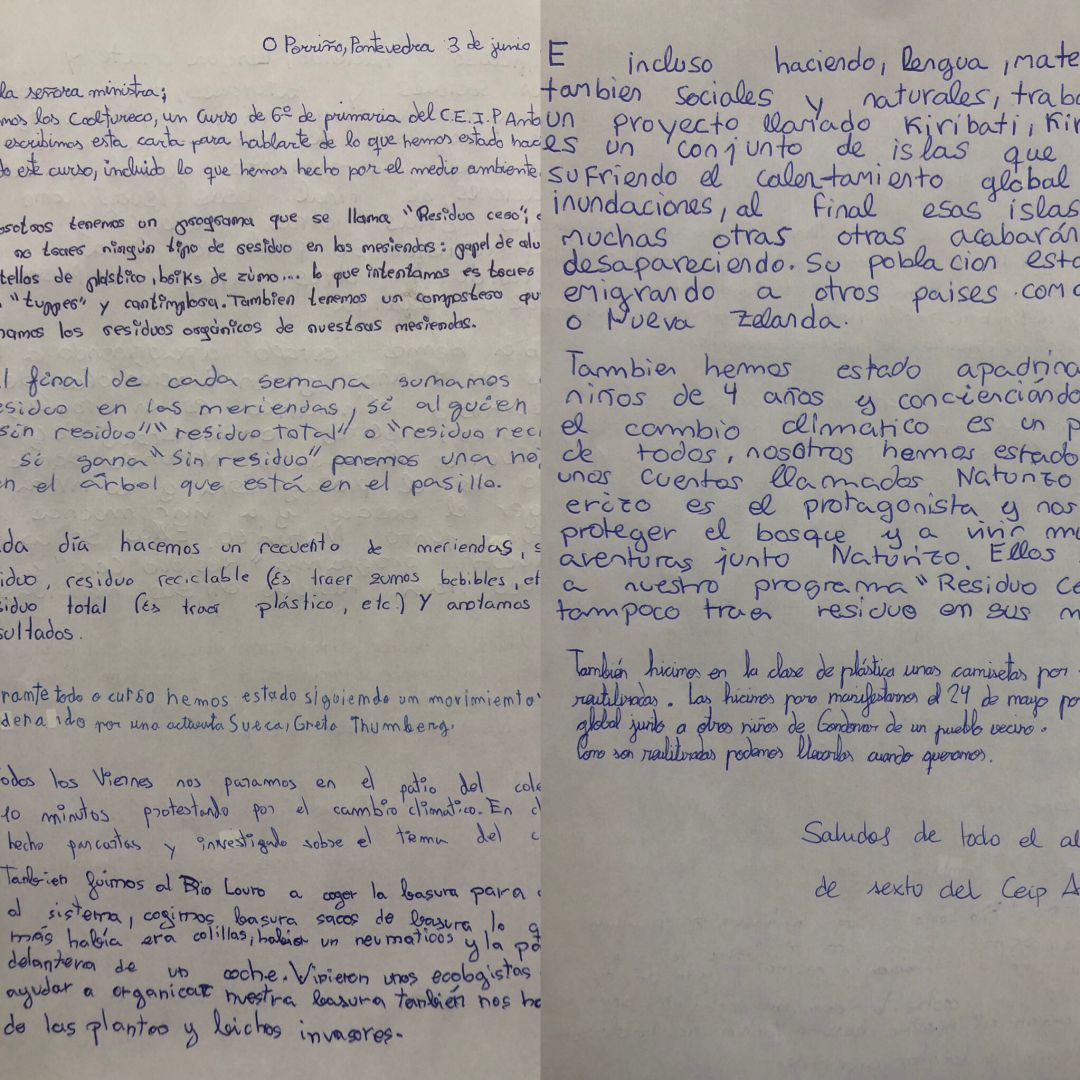 O Porriño, Pontevedra 3 de junio
la señora ministra;
mos los Cooltureco, un curso de 6º de primaria del C.E.I.P Anto
escribimos esta carta para hablarte de lo que hemos estado hac
do este curso, incluido lo que hemos hecho por el medio ambiente.
osotros tenemos un programa que se llama "Residuo cero";
no traer ningún tipo de residuo en las meriendas: papel de alu
tellas de plástico, briks de zumo... lo que intentamos es traer
"tupper" y cantimplora. Tambien tenemos un compostero qu
hamos los residuos orgánicos de nuestras meriendas.
l final de cada semana sumamos
esiduo en las meriendas, si alguien
sin residuo" "residuo total" o "residuo reci
si gana "sin residuo" ponemos una ho
n el árbol que está en el pasillo.
da día hacemos un recuento de meriendas, s
iduo, residuo reciclable (Es traer zumos bebibles, et
siduo total (Es traer plástico, etc.) Y anotamos
sultados.
rante todo o curso hemos estado siguiendo un movimiento
dera ido por una activista Sueca, Greta Thumberg.
odos los Viernes nos paramos en el patio del cole
10 minutos protestando por el cambio climatico. En cl
hecho pancartas y investigado sobre el tema del c
Tanbien fuimos al Rio Louro a coger la basura para
al sistema, cogimos basura sacos de basura lo q
más había era colillas, habia un neumaticos y la pa
delantera de un coche. Vinieron unos ecologistas
ayudar a organizar nuestra basura también nos ha
de las plantas y bichos invasores.
E incluso haciendo, lengua, mate
tanbien sociales y naturales, traba
un proyecto llamado Kiribati, Kir
es un conjunto de islas que
sufriendo el calentamiento global
inundaciones, al final esas islas
muchas otras otras acabarán
desapareciendo. Su poblacion esta
emigrando a otros paises como
o Nueva Zelanda.
Tambien hemos estado apadrina
niños de 4 años y concienciándo
el cambio climatico es un p
de todos, nosotros hemos estado
unos cuentos llamados Naturizo
erizo es el protagonista y nos
proteger el bosque y a vivir mu
aventuras junto Naturizo. Ellos
a nuestro programa "Residuo ce
tampoco traer residuo en sus m
También hicimos en la clase de plástica unas camisetas por
reutilizadas. Las hicimos para manifestarnos el 24 de mayo po
global junto a otros niños de Gondomar de un pueblo vecino.
Como son reutilizadas podemos llevarlas cuando queramos.
Saludos de todo el al
de sexto del Ceip A